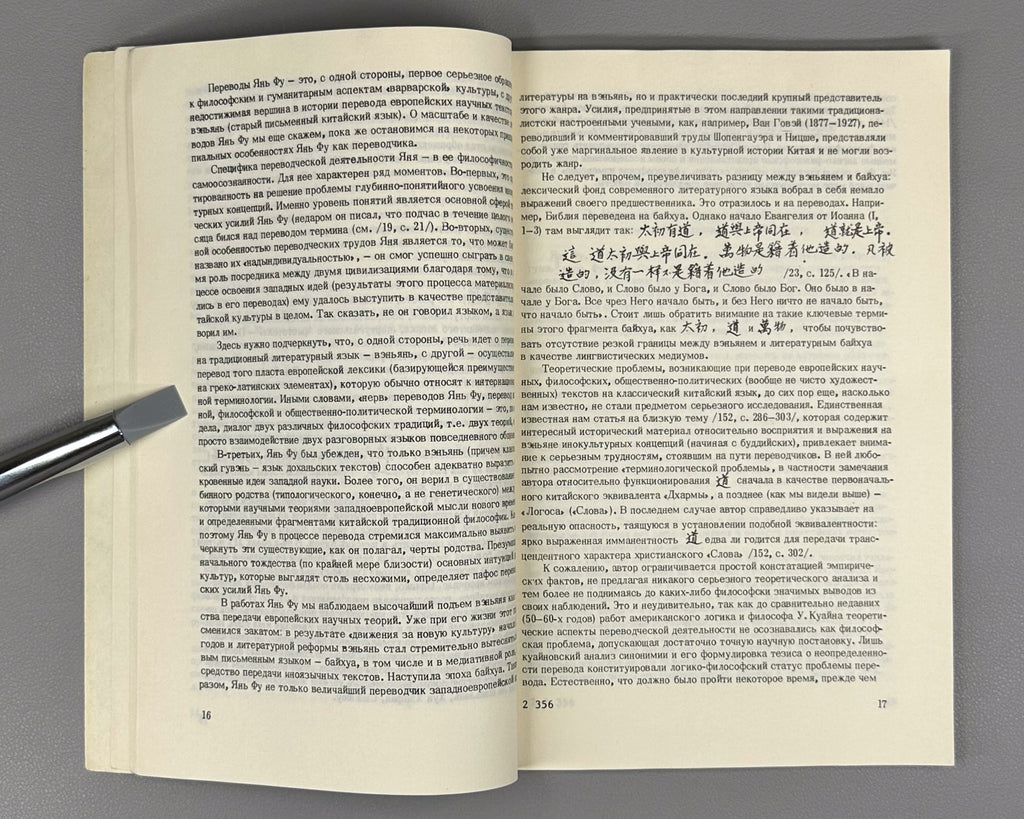 Переводы Янь Фу — это, с одной стороны, первое серьезное
к философским и гуманитарным аспектам «варварской» культуры, с
недостижимая вершина в истории перевода европейских научных
вэньянь (старый письменный китайский язык). О масштабе и качестве
водов Янь Фу мы еще скажем, пока же остановимся на некоторых
пиальных особенностях Янь Фу как переводчика.
Специфика переводческой деятельности Яня — в ее
самоосознанности. Для нее характерен ряд моментов. Во-первых, это
тированность на решение проблемы глубинно-понятийного усвоения
турных концепций. Именно уровень понятий является основной сферой
ческих усилий Янь Фу (недаром он писал, что подчас в течение целого
сяца бился над переводом термина (см. /19, с. 21/). Во-вторых,
ной особенностью переводческих трудов Янь Фу является то, что может
названо их «надындивидуальностью», — он смог успешно сыграть в
мя роль посредника между двумя цивилизациями благодаря тому, что
цессе освоения западных идей (результаты этого процесса
лись в его переводах) ему удалось выступить в качестве
тайской культуры в целом. Так сказать, не он говорил языком, а
ворил им.
Здесь нужно подчеркнуть, что, с одной стороны, речь идет о
на традиционный литературный язык — вэньянь, с другой —
перевод того пласта европейской лексики (базирующейся
на греко-латинских элементах), которую обычно относят к
ной терминологии. Иными словами, «нерв» переводов Янь Фу,
ной, философской и общественно-политической терминологии — это,
дела, диалог двух различных философских традиций, т.е. двух
просто взаимодействие двух разговорных языков повседневного
В-третьих, Янь Фу был убежден, что только вэньянь (причем
ский гувэнь — язык доханьских текстов) способен адекватно
кровенные идеи западной науки. Более того, он верил в
бинного родства (типологического, конечно, а не генетического)
которыми научными теориями западноевропейской мысли нового
и определенными фрагментами китайской традиционной философии.
поэтому Янь Фу в процессе перевода стремился максимально
черкнуть эти существующие, как он полагал, черты родства.
начального тождества (по крайней мере близости) основных
культур, которые выглядят столь несхожими, определяет пафос
ских усилий Янь Фу.
В работах Янь Фу мы наблюдаем высочайший подъем вэньяня
ства передачи европейских научных теорий. Уже при его жизни этот
сменился закатом: в результате «движения за новую культуру»
годов и литературной реформы вэньянь стал стремительно
вым письменным языком — байхуа, в том числе и в медиативной
средство передачи иноязычных текстов. Наступила эпоха байхуа.
разом, Янь Фу не только величайший переводчик западноевропейской
16
литературы на вэньянь, но и практически последний крупный представитель
этого жанра. Усилия, предпринятые в этом направлении такими традициона-
листски настроенными учеными, как, например, Ван Говэй (1877—1927), пе-
реводивший и комментировавший труды Шопенгауэра и Ницше, представляли
собой уже маргинальное явление в культурной истории Китая и не могли воз-
родить жанр.
Не следует, впрочем, преувеличивать разницу между вэньянем и байхуа:
лексический фонд современного литературного языка вобрал в себя немало
выражений своего предшественника. Это отразилось и на переводах. Напри-
мер, Библия переведена на байхуа. Однако начало Евангелия от Иоанна (I,
1—3) там выглядит так: 太初有道, 道與上帝同在, 道就是上帝.
這 道太初與上帝同在. 萬物是籍着他造的. 凡被
造的, 没有一样不是籍着他造的 /23, с. 125/. «В на-
чале было Слово, и Слово было у Бога, и Слово было Бог. Оно было в на-
чале у Бога. Все чрез Него начало быть, и без Него ничто не начало быть,
что начало быть». Стоит лишь обратить внимание на такие ключевые терми-
ны этого фрагмента байхуа, как 太初, 道 и 萬物, чтобы почувство-
вать отсутствие резкой границы между вэньянем и литературным байхуа
в качестве лингвистических медиумов.
Теоретические проблемы, возникающие при переводе европейских науч-
ных, философских, общественно-политических (вообще не чисто художест-
венных) текстов на классический китайский язык, до сих пор еще, насколько
нам известно, не стали предметом серьезного исследования. Единственная
известная нам статья на близкую тему /152, с. 286—303/, которая содержит
интересный исторический материал относительно восприятия и выражения на
вэньяне инокультурных концепций (начиная с буддийских), привлекает внима-
ние к серьезным трудностям, стоявшим на пути переводчиков. В ней любо-
пытно рассмотрение «терминологической проблемы», в частности замечания
автора относительно функционирования 道 сначала в качестве первоначаль-
ного китайского эквивалента «Дхармы», а позднее (как мы видели выше) —
«Логоса» («Слова»). В последнем случае автор справедливо указывает на
реальную опасность, таящуюся в установлении подобной эквивалентности:
ярко выраженная имманентность 道 едва ли годится для передачи транс-
цендентного характера христианского «Слова» /152, с. 302/.
К сожалению, автор ограничивается простой констатацией эмпириче-
ских фактов, не предлагая никакого серьезного теоретического анализа и
тем более не поднимаясь до каких-либо философски значимых выводов из
своих наблюдений. Это и неудивительно, так как до сравнительно недавних
(50—60-х годов) работ американского логика и философа У. Куайна теорети-
ческие аспекты переводческой деятельности не осознавались как философ-
ская проблема, допускающая достаточно точную научную постановку. Лишь
куайновский анализ синонимии и его формулировка тезиса о неопределенно-
сти перевода конституировали логико-философский статус проблемы пере-
вода. Естественно, что должно было пройти некоторое время, прежде чем
2 356
17